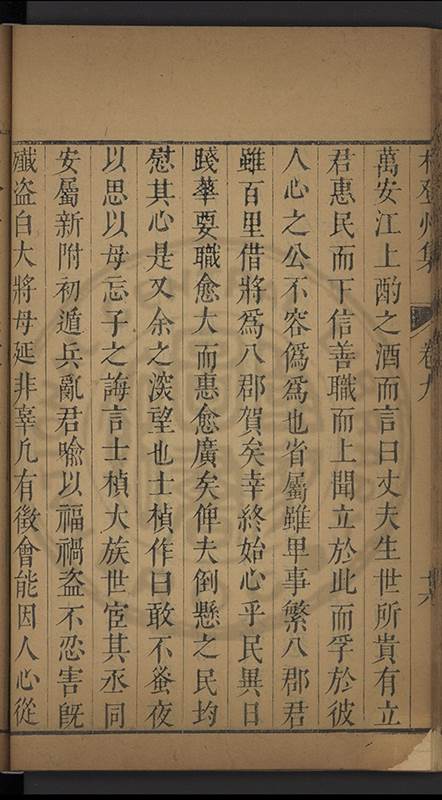 林登州集 卷九
萬安江上酌之酒而言曰丈夫生世所貴有立
君惠民而下信善職而上聞立於此而孚於彼
人心之公不容僞爲也省屬雖卑事繁八郡君
雖百里借將爲八郡賀矣幸終始心乎民異日
踐華要職愈大而惠愈廣矣俾夫倒懸之民均
慰其心是又余之深望也士楨作曰敢不蚤夜
以思以毋忘子之誨言士楨大族世宦其丞同
安屬新附初遁兵亂君喩以福禍盜不忍害旣
殲盜白大將毋延非辜凢有徵會能因人心從